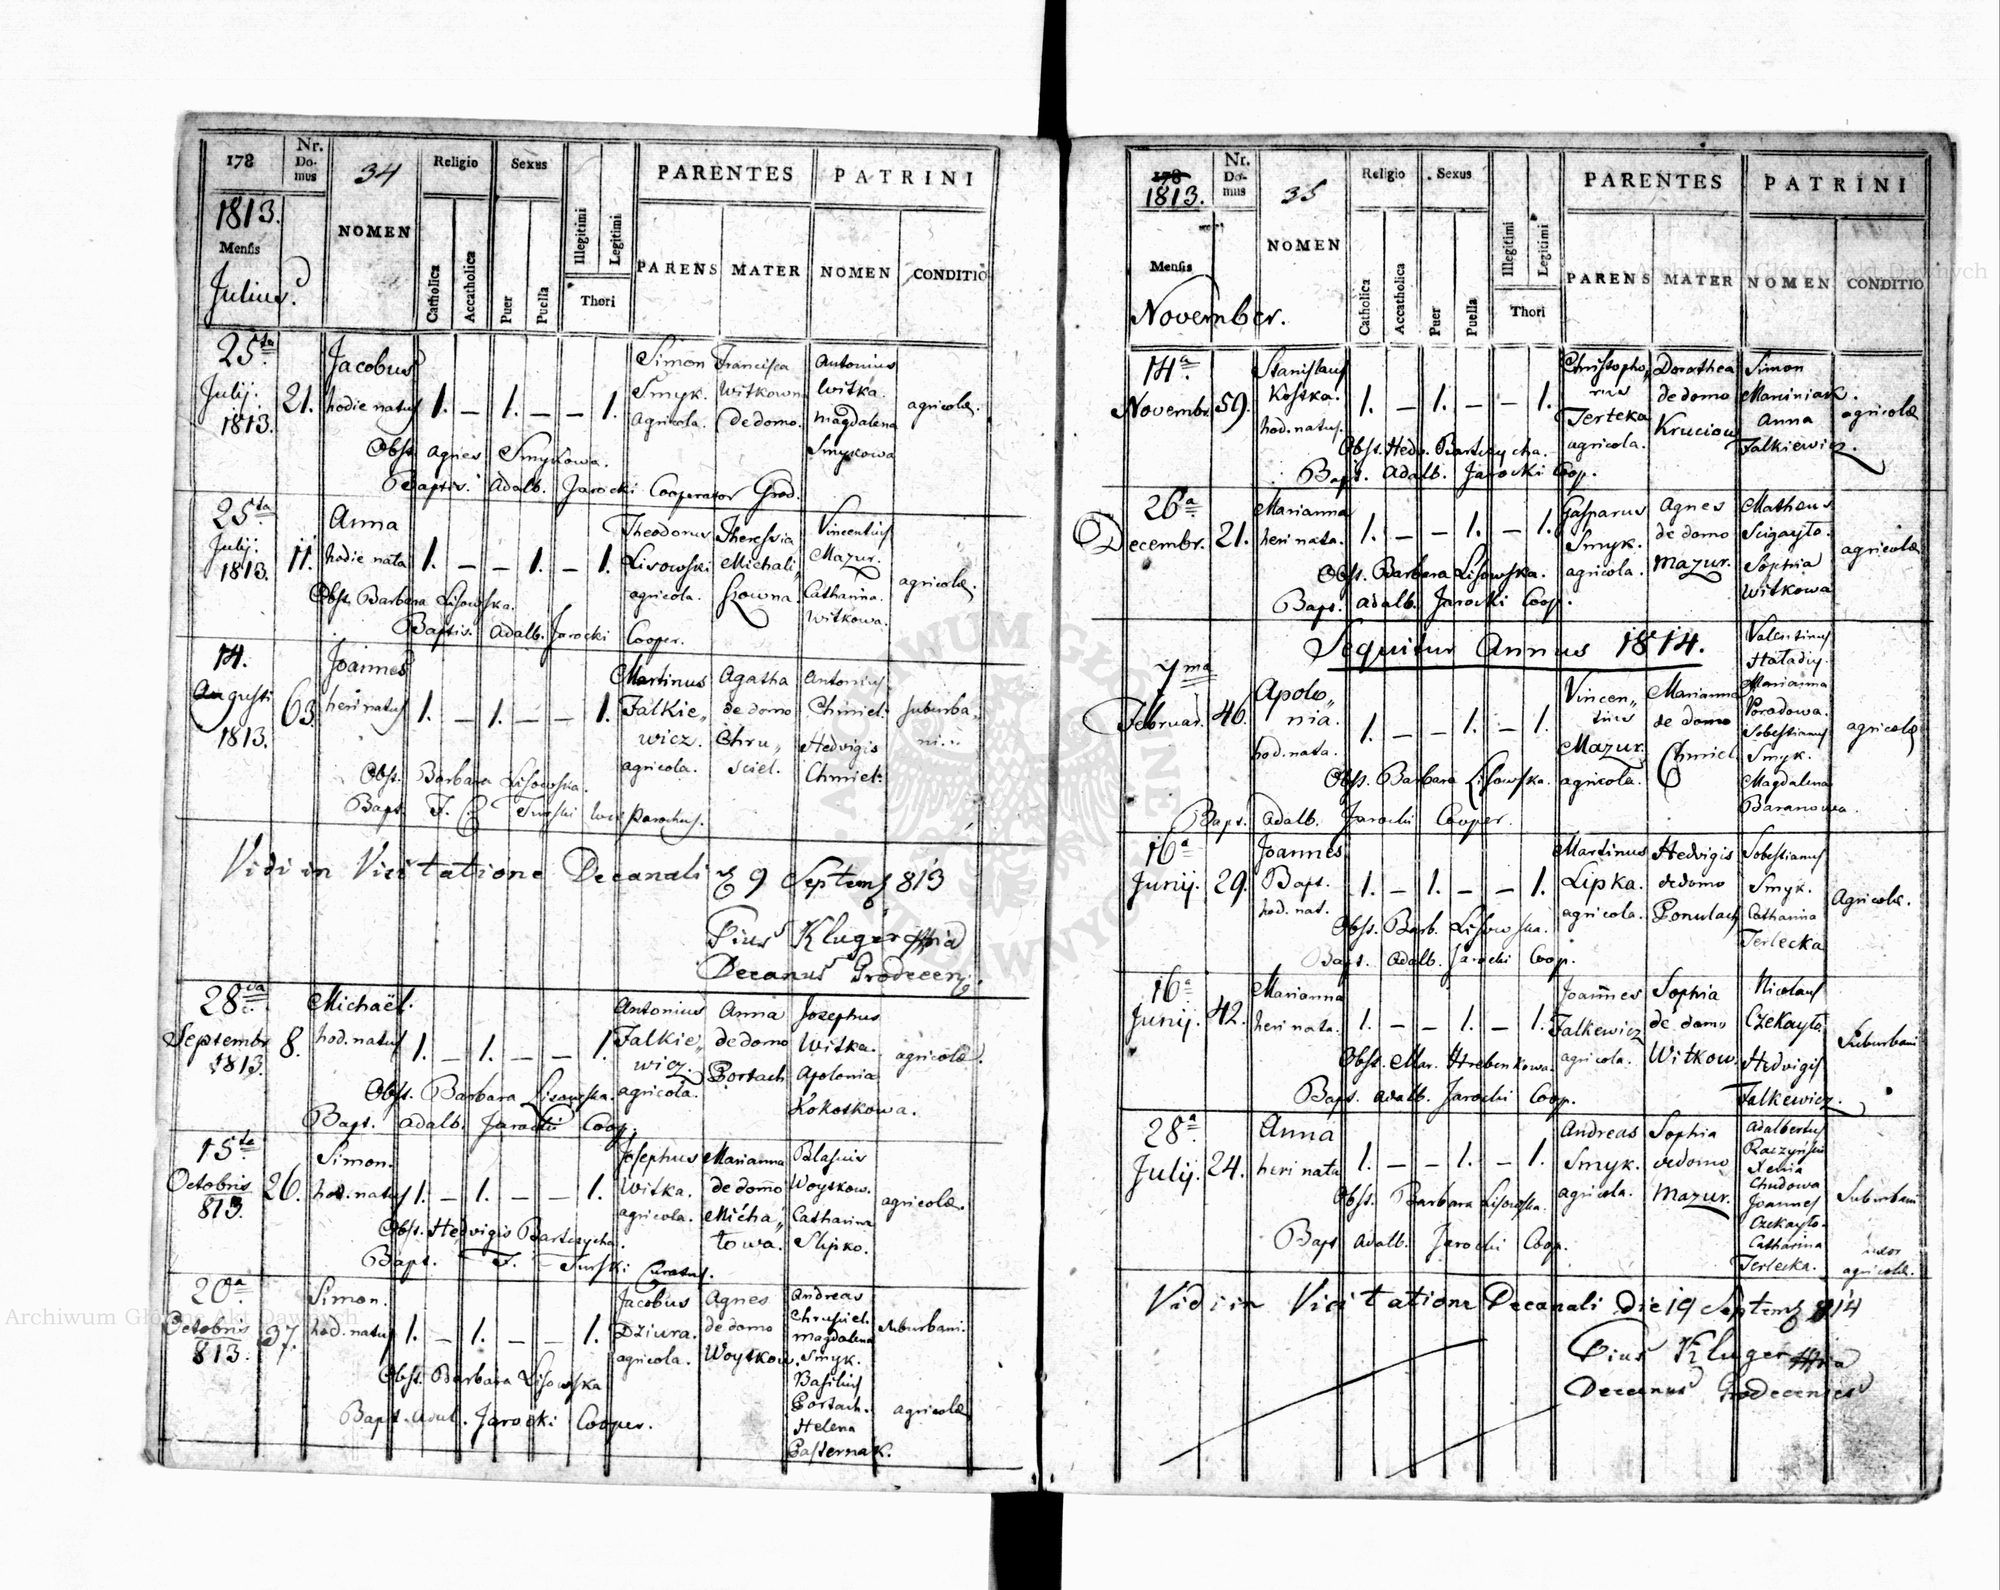 178
Nr. Do- mus
34
NOMEN
Religio
Sexus
PARENTES
PATRINI
1813.
Mensis
Julius
Catholica
Accatholica
Puer
Puella
Illegitimi
Legitimi
Thori
PARENS
MATER
NOMEN
CONDITIO
25ta Julij. 1813.
21.
Jacobus
hodie natus
1. – 1. – – 1.
Simon
Smyk.
Agricola.
Francisca
Witkowna
de domo.
Antonius
Witka.
Magdalena
Smykowa
agricolae.
Obst. Agnes Smykowa.
Baptis. Adalb. Jarocki Cooperator Grod.
25ta Julij. 1813.
11.
Anna
hodie nata
1. – – 1. – 1.
Theodorus
Lisowski
agricola.
Theressia
Michali„
szowna.
Vincentius
Mazur.
Catharina
Witkowa.
agricolae.
Obst. Barbara Lisowska.
Baptis. Adalb. Jarocki Cooper.
14. Augusti 1813.
63.
Joannes
heri natus
1. – 1. – – 1.
Martinus
Falkie„
wicz.
agricola.
Agatha
de domo
Chru„
sciel.
Antonius
Chmiel.
Hedvigis
Chmiel.
suburba„
ni.
Obst. Barbara Lisowska.
Bapt. F. Turski Parochus.
Vidi in Visitatione Decanali 9 Septemb 813
Pius Kluger mpia
Decanus Grodecens
28va Septembr 1813.
8.
Michaël.
hod. natus
1. – 1. – – 1.
Antonius
Falkie„
wicz.
agricola.
Anna
de domo
Portach
Josephus
Witka.
Apolonia
Kokotkowa.
agricolae.
Obst. Barbara Lisowska.
Bapt. Adalb. Jarocki Coop.
15ta Octobris 813.
26.
Simon.
hod. natus
1. – 1. – – 1.
Josephus
Witka.
agricola.
Marianna
de domo
Micha„
łowa.
Blasius
Woytkow.
Catharina
Slipko.
agricolae.
Obst. Hedvigis Bartczycha.
Bapt. F. Turski Curatus.
20ma Octobris 813.
37.
Simon.
hod. natus
1. – 1. – – 1.
Jacobus
Dziura.
agricola.
Agnes
de domo
Woytkow.
Andreas
Chrusciel.
Magdalena
Smyk.
Basilius
Portach.
Helena
Pasternak.
suburbani.
agricolae
Obst. Barbara Lisowska
Bapt. Adal. Jarocki Cooper.
178
1813.
Nr. Do- mus
35
NOMEN
Religio
Sexus
PARENTES
PATRINI
Mensis
November.
Catholica
Accatholica
Puer
Puella
Illegitimi
Legitimi
Thori
PARENS
MATER
NOMEN
CONDITIO
14a Novembr.
59.
Stanislaus
Kostka.
hod. natus.
1. – 1. – – 1.
Christopho„
rus
Terleka
agricola.
Dorothea
de domo
Kruciow
Simon
Maniniak.
Anna
Falkiewicz.
agricolae
Obst. Hedv. Bartczycha.
Bapt. Adalb. Jarocki Coop.
26a Decembr.
21.
Marianna
heri nata.
1. – – 1. – 1.
Gasparus
Smyk.
agricola.
Agnes
de domo
Mazur.
Matheus
Scigayło.
Sophia
Witkowa
agricolae
Obst. Barbara Lisowska.
Bapt. Adalb. Jarocki Coop.
Sequitur Annus 1814.
7ma Februar.
46.
Apolo„
nia.
hod. nata.
1. – – 1. – 1.
Vincen„
tius
Mazur.
agricola.
Marianna
de domo
Chmiel
Valentinus
Haladiy.
Marianna
Poradowa.
Sobestianus
Smyk.
Magdalena
Baranowa.
agricolae
Obst. Barbara Lisowska.
Bapt. Adalb. Jarocki Cooper.
16a Junij.
29.
Joannes
Bapt.
hod. nat.
1. – 1. – – 1.
Martinus
Lipka.
agricola.
Hedvigis
de domo
Ponulach
Sobestianus
Smyk.
Catharina
Terlecka
Agricolae.
Obst. Barb. Lisowska.
Bapt. Adalb. Jarocki Coop.
16a Junij.
42.
Marianna
heri nata.
1. – – 1. – 1.
Joannes
Falkewicz
agricola.
Sophia
de domo
Witkow.
Nicolaus
Czekayło
Hedvigis
Falkewicz.
Suburbani
Obst. Mar. Hrebenkowa.
Bapt. Adalb. Jarocki Coop.
28a Julij.
24.
Anna
heri nata
1. – – 1. – 1.
Andreas
Smyk.
agricola.
Sophia
de domo
Mazur.
Adalbertus
Raczyński
Xenia
Chudowa
Joannes
Czekayło.
Catharina
Terlecka.
Suburbani
uxor
agricolae.
Obst. Barbara Lisowska.
Bapt Adalb. Jarocki Coop.
Vidi in Visitatione Decanali Die 19 Septemb 814
Pius Kluger mpia
Decanus Grodecensis
Archiwum Główne Akt Dawnych
Archiwum Główne Akt Dawnych
ARCHIWUM GŁÓWNE AKT DAWNYCH